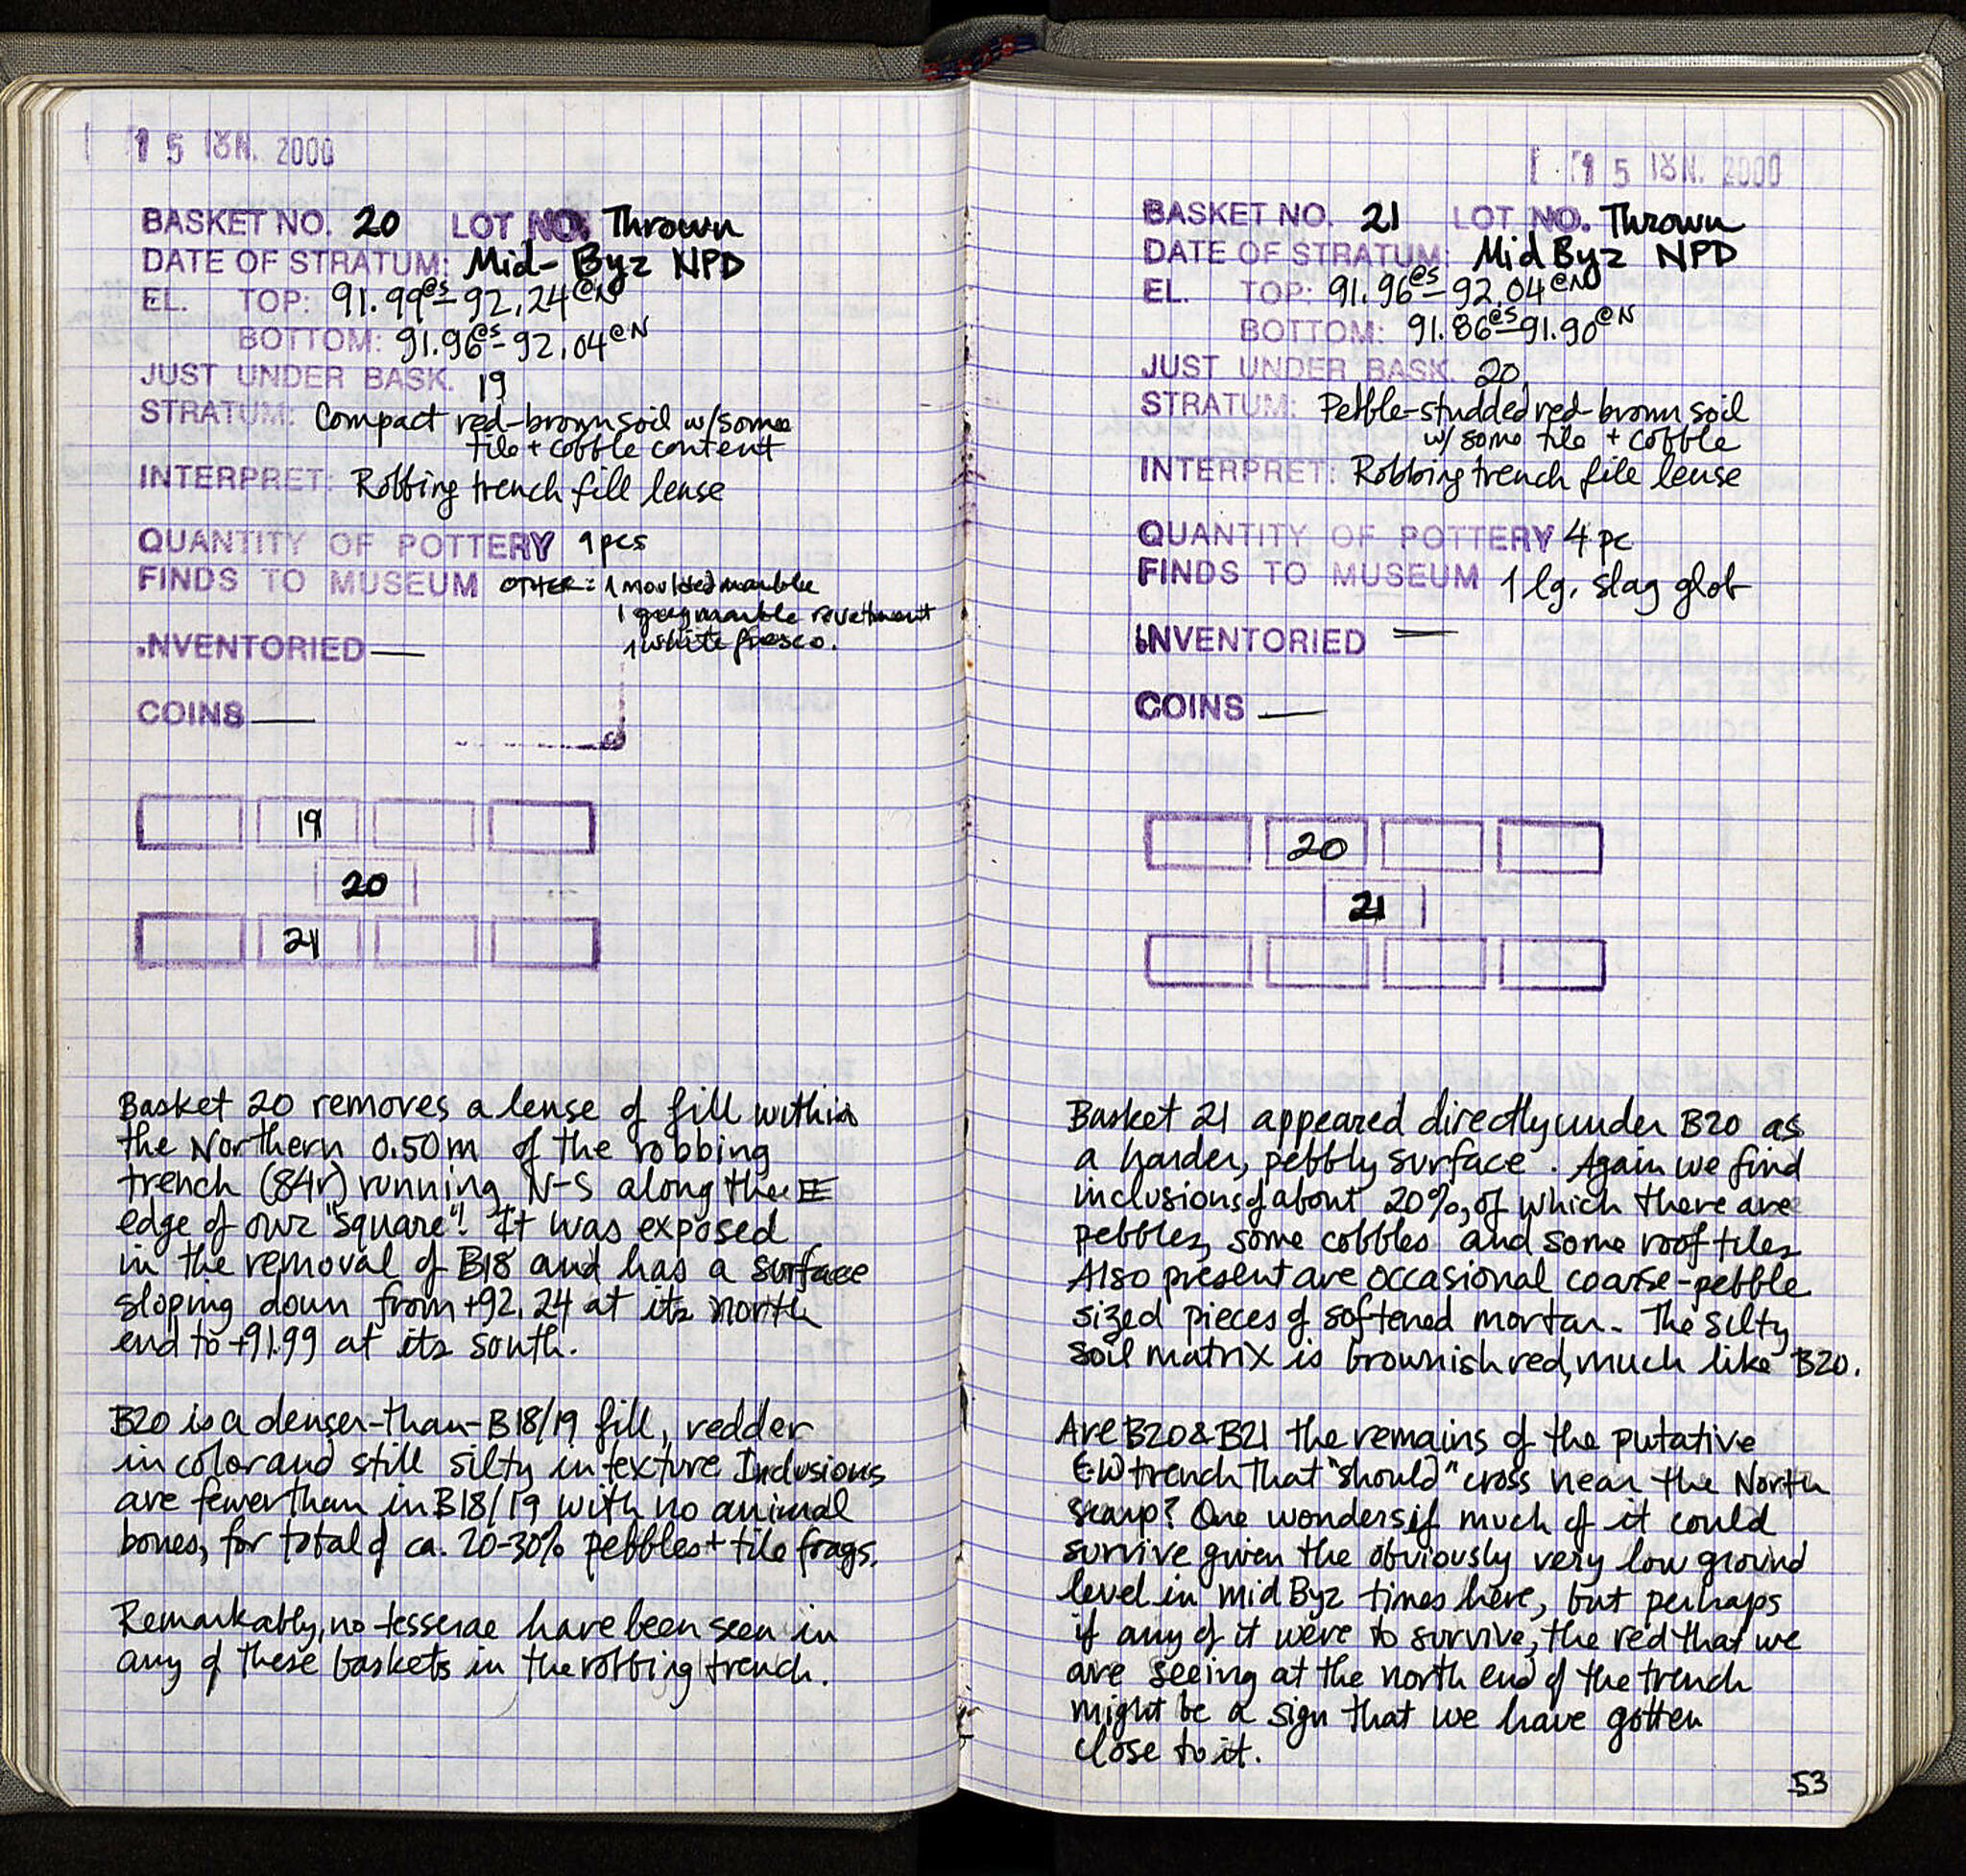 15 ΙΟΥΝ. 2000
BASKET NO. 20 LOT NO. Thrown
DATE OF STRATUM: Mid-Byz NPD
EL. TOP: 91.99@S-92.24@N
BOTTOM: 91.96@S-92.04@N
JUST UNDER BASK. 19
STRATUM: Compact red-brown soil w/some
tile + cobble content
INTERPRET: Robbing trench fill lense
QUANTITY OF POTTERY 9 pcs
FINDS TO MUSEUM OTHER: 1 moulded marble
1 grey marble revetment
1 white fresco.
INVENTORIED —
COINS —
19
20
21
Basket 20 removes a lense of fill within
the Northern 0.50m of the robbing
trench (84r) running N-S along the E
edge of our "square"! It was exposed
in the removal of B18 and has a surface
sloping down from +92.24 at its north
end to +91.99 at its south.
B20 is a denser-than-B18/19 fill, redder
in color and still silty in texture Inclusions
are fewer than in B18/19 with no animal
bones, for total of ca. 20-30% pebbles + tile frags.
Remarkably, no tesserae have been seen in
any of these baskets in the robbing trench.
15 ΙΟΥΝ. 2000
BASKET NO. 21 LOT NO. Thrown
DATE OF STRATUM: Mid Byz NPD
EL. TOP: 91.96@S-92.04@N
BOTTOM: 91.86@S-91.90@N
JUST UNDER BASK. 20
STRATUM: Pebble-studded red-brown soil
w/ some tile + cobble
INTERPRET: Robbing trench fill lense
QUANTITY OF POTTERY 4 pc
FINDS TO MUSEUM 1 lg. slag glob
INVENTORIED —
COINS —
20
21
Basket 21 appeared directly under B20 as
a harder, pebbly surface. Again we find
inclusions of about 20%, of which there are
pebbles, some cobbles and some roof tiles
Also present are occasional coarse-pebble
sized pieces of softened mortar. The silty
soil matrix is brownish red, much like B20.
Are B20 & B21 the remains of the putative
E-W trench that "should" cross near the North
scarp? One wonders if much of it could
survive given the obviously very low ground
level in mid Byz times here, but perhaps
if any of it were to survive, the red that we
are seeing at the north end of the trench
might be a sign that we have gotten
close to it.
53